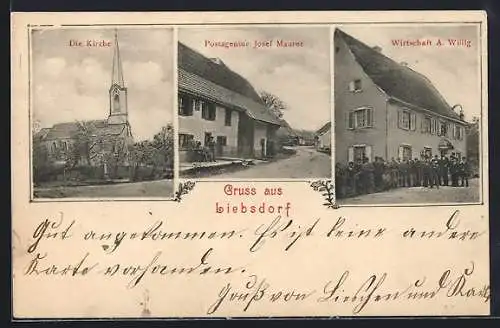 Die Kirche
Postagentur Josef Maurer
Wirtschaft A. Willig
Gruss aus
Liebsdorf
Gut angekommen. Es ist keine andere
Karte vorhanden.
Gruß von Lieschen und Karl